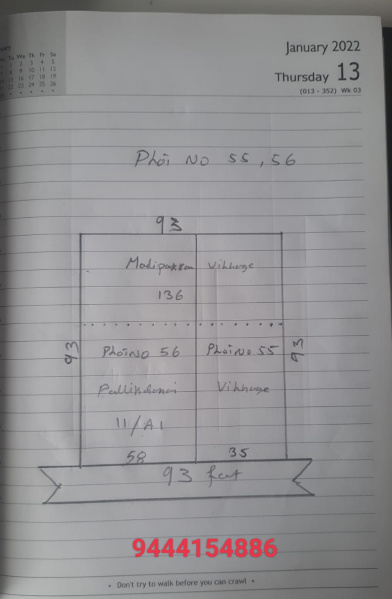 January 2022
Thursday 13
(013 - 352) Wk 03
Phoi No 55, 56
93
Madipakkam Village
136
93
93
Phoi No 56 Phoi No 55
Pallikaranai Village
11/A1
58 35
93 feet
9444154886
• Don't try to walk before you can crawl •